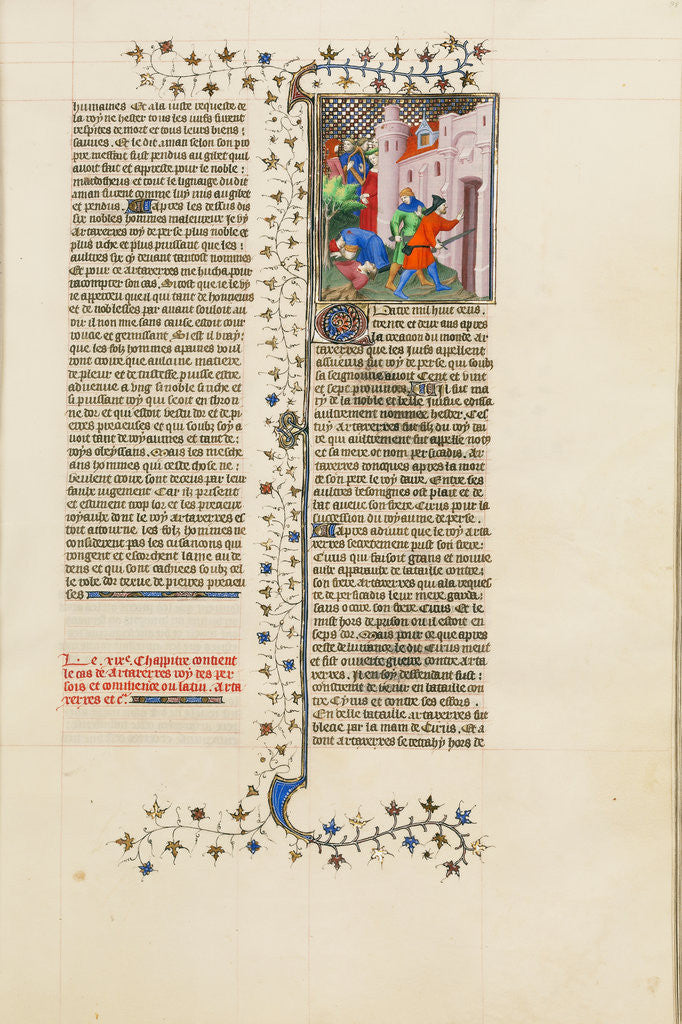 humaines Et a la iuste requeste de
la royne hester tous les iuifs furent
respites de mort et tous leurs biens
sauues. Et le dit aman selon son pro
pre meffait fust pendus au gibet quil
auoit fait et appreste pour le noble
mardocheus et tout le lignaige du dit
aman furent comme luy mis au gibet
et pendus. Apres les dessus dis
six nobles hommes maleureux ie vy
Artaxerxes roy de perse plus noble et
plus riche et plus puissant que les
aultres six cy deuant tantost nommes
Et pour ce artaxerxes me hucha pour
racompter son cas. Si tost que ie le vy
ie apperceu que il qui tant de honneurs
et de noblesses par auant souloit au
oir il non mie sans cause estoit cour
roucie et gemissant Si est il vray
que les folz hommes a paines voul
ront croire que aulcune matiere
de pleur et de tristesse puisse estre
aduenue a ung si noble si riche et
si puissant roy qui seoit en thron
ne dor et qui estoit vestu dor et de pi
erres precieuses et qui soubz soy a
uoit tant de royaumes et tant de
roys obeyssans. Mais les mesche
ans hommes qui ceste chose ne
veulent croire sont deceus par leur
faulx iugement Car ilz prisent
et estiment trop lor et les precieux
ioyaulx dont le roy artaxerxes es
toit attourne les folz hommes ne
considerent pas les cusancons qui
rongent et escorchent lame au de
dens et qui sont cachiees soubz cel
le robe dor texue de pierres precieu
ses
Le .xixe. Chappitre contient
le cas de Artaxerxes roy des per
sois et commence ou latin. Arta
xerxes et c.
Quatre mil huit cens
trente et deux ans apres
la creation du monde Ar
taxerxes que les iuifs appellent
assuerus fut roy de perse qui soubz
sa seignourie auoit Cent et vint
et sept prouinces. Il fut ma
ry de la noble et belle iuifue edissa
aultrement nommee hester. Ces
tuy artaxerxes fut filz du roy dai
re qui aultrement fut appelle noty
et sa mere ot nom persicadis. Ar
taxerxes doncques apres la mort
de son pere le roy daire. Entre ses
aultres besongnes ot plait et de
bat aueuc son frere Cirus pour la
succession du royaume de perse.
Apres aduint que le roy arta
xerxes secretement prist son frere
Cirus qui faisoit grans et nouue
aulx apparaulx de bataille contre
son frere artaxerxes qui a la reques
te de persicadis leur mere garda
sans occire son frere Cirus Et le
mist hors de prison ou il estoit en
seps dor. Mais pour ce que apres
ceste deliurance le dit Cirus meut
et fist ouuerte guerre contre arta
xerxes. Il en soy deffendant fust
constraint de venir en bataille con
tre Cyrus et contre ses effors.
En celle bataille artaxerxes fut
blecie par la main de Cirus. Et a
dont artaxerxes se retrahy hors de